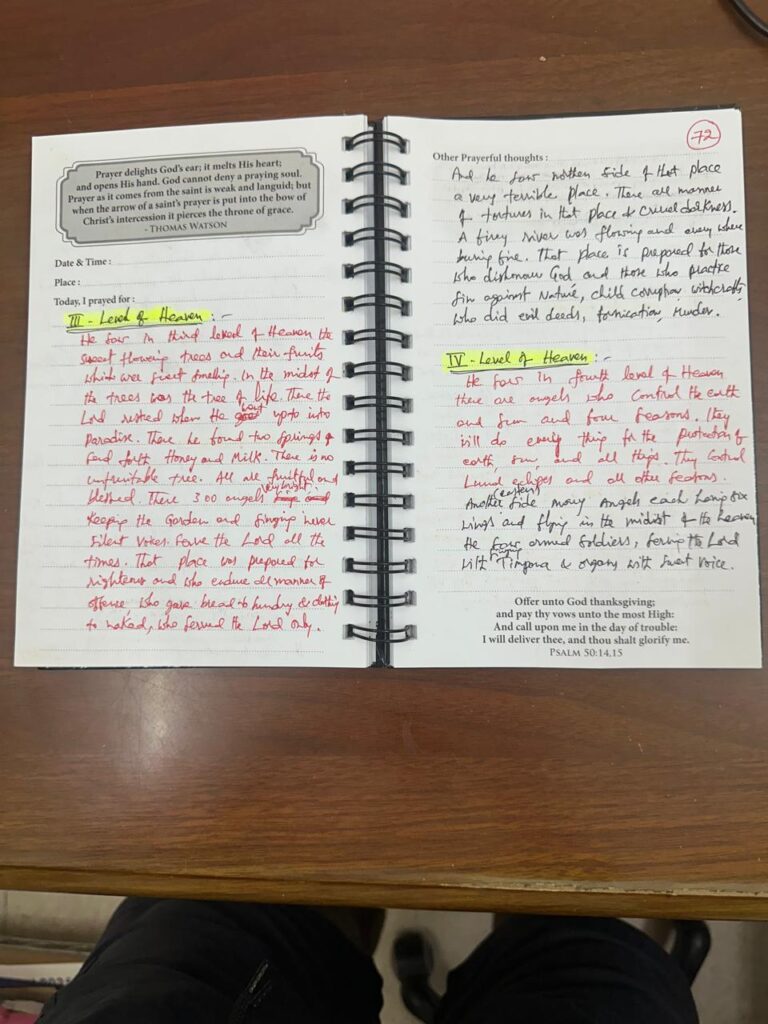 Prayer delights God's ear; it melts His heart;
and opens His hand. God cannot deny a praying soul.
Prayer as it comes from the saint is weak and languid; but
when the arrow of a saint's prayer is put into the bow of
Christ's intercession it pierces the throne of grace.
- THOMAS WATSON
Date & Time :
Place :
Today, I prayed for :
III - Level of Heaven :-
He saw in third leved of Heaven the
sweet flowering trees and their fruits
which were sweet smelling. In the midst of
the trees was the tree of life. There the
Lord rested when he went upto into
Paradise. There he found two springs
send forth Honey and Milk. There is no
unfruitable tree. All are fruitful and
blessed. There 300 angels very bright
keeping the Garden and singing never
silent voices. Serve the Lord all the
times. That place was prepared for
righteous and who endure all manner of
offense who gave bread to hundry & clothing
to naked, who served the Lord only.
72
Other Prayerful thoughts :
And he saw nothen side of that place
a very terrible place. There all manner
of tortures in that place & cruel darkness.
A firey river was flowing and every where
buring fire. That place is prepared for those
who dishonour God and those who practise
sin against Nature, child corruption witchcrafts
who did evil deeds, fornication, murder.
IV - Level of Heaven :-
He saw in fourth level of Heaven
there are angels who control the earth
and sun and four seasons. They
will do every thing for the protection of
earth, sun, and all things. They control
Lunar eclipes and all other seasons.
Another eastern side many Angels each having six
wings and flying in the midist of the heaven
He saw armed soldiers, serving the Lord
with Timpona & organs with sweet voice.
Offer unto God thanksgiving;
and pay thy vows unto the most High:
And call upon me in the day of trouble:
I will deliver thee, and thou shalt glorify me.
PSALM 50:14,15